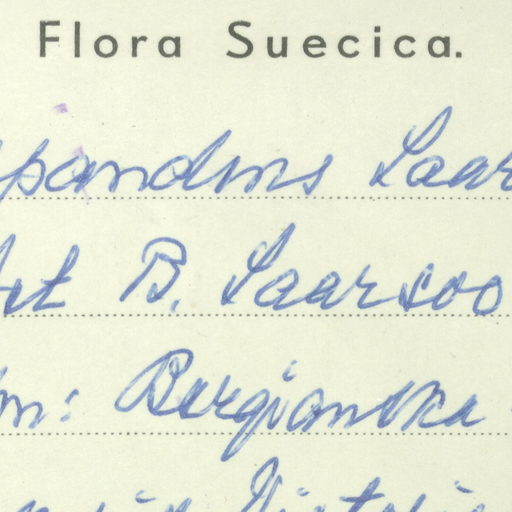 Flora Suecica.
pandens Saar
det B. Saarsoo
m: Bergianska